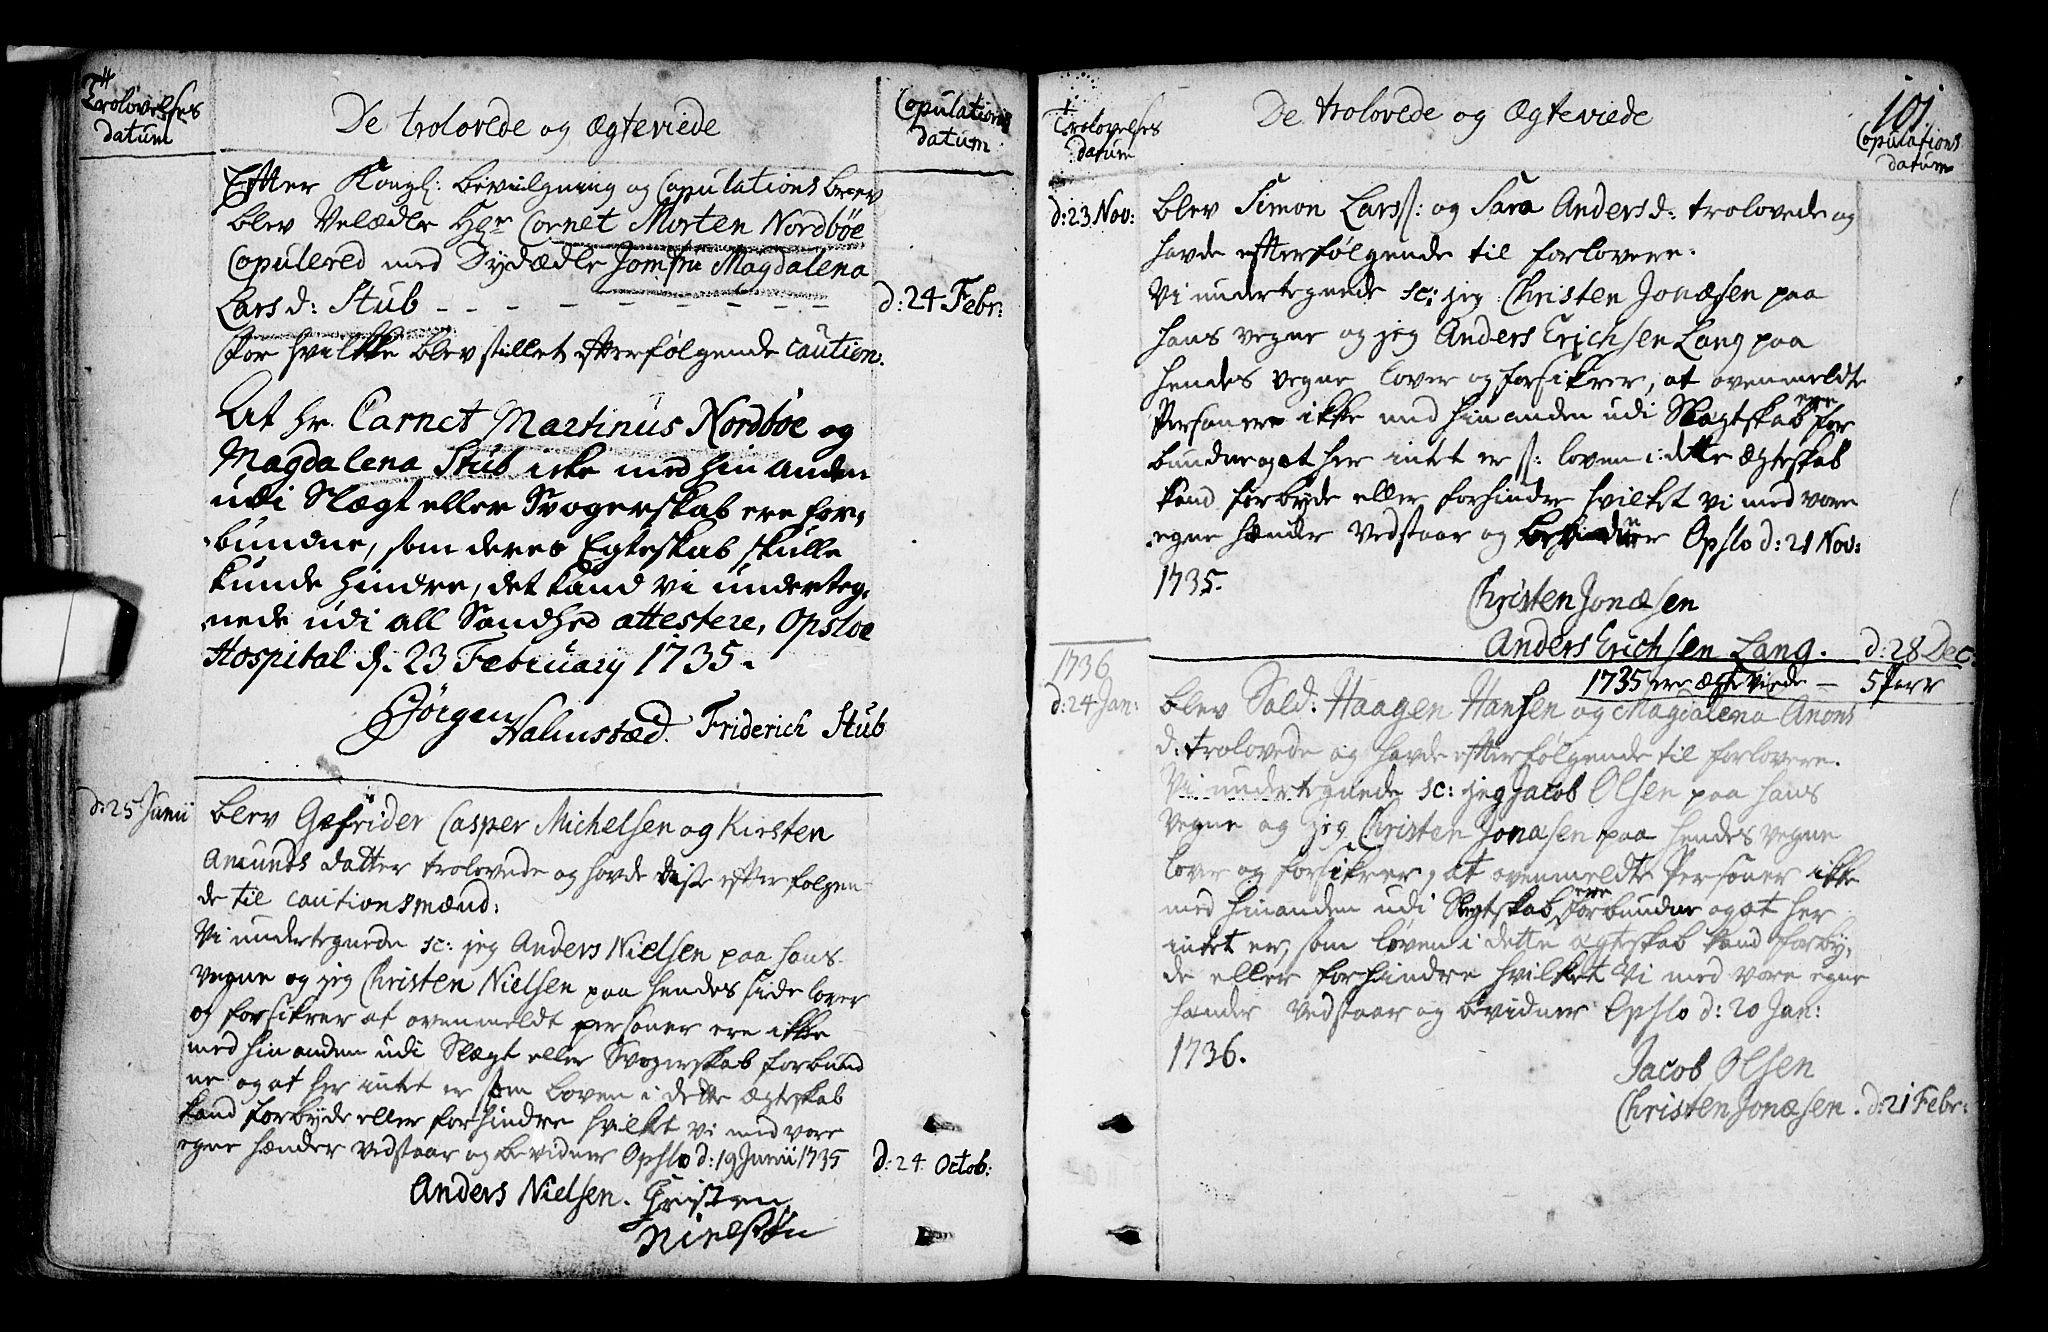 Trolovelses
datum
De trolovede og Ægteviede
Copulations
datum
Efter Kongl: bevilgning og Copulations brev
blev Velædle Hgr Cornet Morten Nordbøe
Copulered med Dydædle Jomfru Magdalena
Lars d: Stub - - - - - - - - d: 24 Febr:
For hvilke blev stillet efterfølgende caution.
At hr. Carnet Martinus Nordbøe og
Magdalena Stub icke med hin anden
udi Slægt eller Svogerskab ere for-
bundne, som deres Egteskab skulle
kunde hindre, det kand vi underteg-
nede udi all Sandhed attestere, Opsloe
Hospital d. 23 February 1735.
Jørgen Halmstæd. Friderich Stub
d: 25 Junii blev Gefrider Casper Michelsen og Kirsten
Amunds datter trolovede og havde disse efterfølgen
de til cautionsmænd:
Vi undertegnede sc: jeg Anders Nielsen paa hans
vegne og jeg Christen Nielsen paa hendes side lover
og forsikrer at ovenmeldt personer ere ikke
med hinanden udi Slægt eller Svogerskab forbund
ne og at her intet er som loven i dette ægteskab
kand forbyde eller forhindre hvilket vi med vore
egne hænder vedstaar og bevidner Opslo d: 19 Junii 1735 d: 24 Octob:
Anders Nielsen. Christen
Nielsen
101
Trolovelses
datum
De trolovede og Ægteviede
Copulations
datum
d: 23 Nov: blev Simon Larss: og Sara Anders d: trolovede og
havde efterfølgende til forlovere:
Vi undertegnede sc: jeg Christen Jonæsen paa
hans vegne og jeg Anders Erichsen Lang paa
hendes vegne lover og forsikrer, at ovenmeldte
Personer ikke med hinanden udi Slægtskab ere for
bundne og at her intet er s: loven i dette ægteskab
kand forbyde eller forhindre hvilket vi med vore
egne hænder vedstaar og bevidner Opslo d: 21 Nov:
1735.
Christen Jonæsen
Anders Erichsen Lang. d: 28 Dec:
1735 ere ægteviede — 5 Parr
1736
d: 24 Jan: blev Sold: Haagen Hansen og Magdalena Anons
d: trolovede og havde efterfølgende til forlovere.
Vi undertegnede sc: jeg Jacob Olsen paa hans
vegne og jeg Christen Jonasen paa hendes vegne
lover og forsikrer, at ovenmeldte Personer ikke
med hinanden udi Slegtskab ere forbundne og at her
intet er, som loven i dette ægteskab kand forby-
de eller forhindre hvilket vi med vore egne
hænder vedstaar og bevidner Opslo d: 20 Jan:
1736.
Jacob Olsen
Christen Jonæsen. d: 21 Febr: